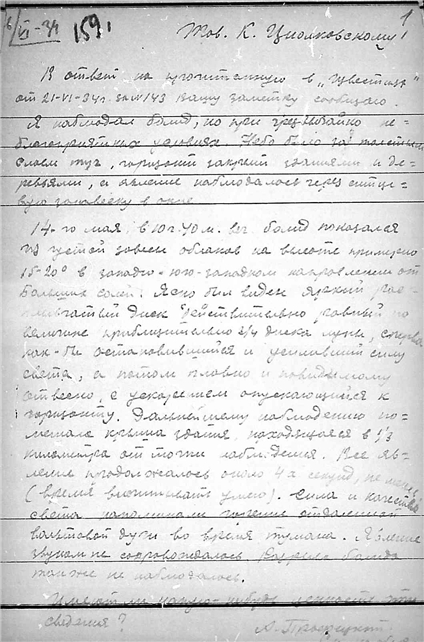 1
VI-34 1591
Тов. К. Циолковскому
В ответ на прочитанную в „Известиях"
от 21-VI-34г. за №143 Вашу заметку сообщаю.
Я наблюдал болид, но при чрезвычайно не-
благоприятных условиях. Небо было за толстым
слоем туч, горизонт закрыт зданиями и де-
ревьями, а явление наблюдалось через ситце-
вую занавеску в окне.
14-го мая в 10 г. 40 м. веч. болид показался
из густой завесы облаков на высоте примерно
15-20° в западо-юго-западном направлении от
Больших солей. Ясно был виден яркий рас-
плывчатый диск действительно равный по
величине приблизительно 3/4 диска луны, сперва
как-бы остановившийся и усиливший силу
света, а потом плавно и повидимому
отвесно, с ускорением опускающийся к
горизонту. Дальнейшему наблюдению по-
мешала крыша здания, находящаяся в 1/3
километра от точки наблюдения. Все яв-
ление продолжалось около 4х секунд, не менее
(время впечатывать умею). Сила и качество
света напоминали горение отдаленной
вольтовой дуги во время тумана. Явление
звуком не сопровождалось. болида
также не наблюдалось.
Имеют ли какую-нибудь ценность эти
сведения? А.